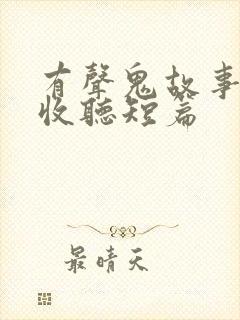 有聲鬼故事
收聽短篇
最晴天